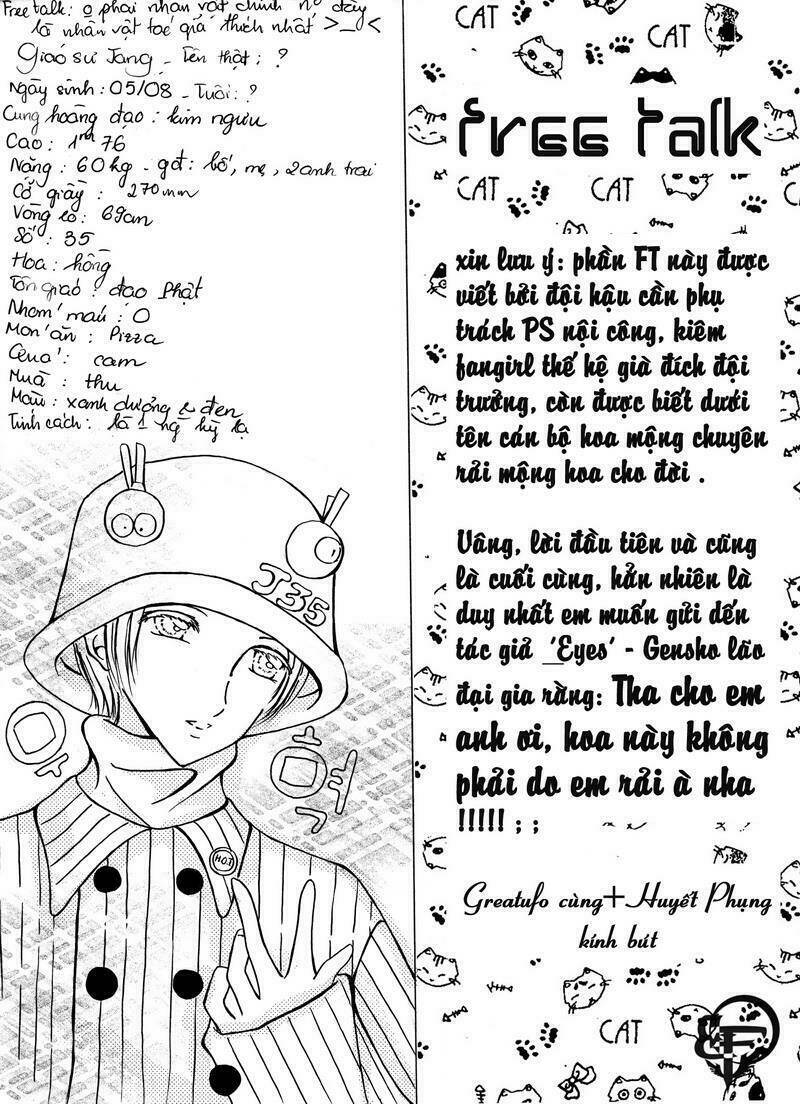 Free talk: o phải nhân vật chính n° đây
là nhân vật tác giả thích nhất >_<
Giáo sư Jang - Tên thật: ?
Ngày sinh: 05/08 - Tuổi: ?
Cung hoàng đạo: kim ngưu
Cao: 1m76
Nặng: 60kg - gđ: bố, mẹ, 2 anh trai
Cỡ giầy: 270mm
Vòng eo: 69cm
Số: 35
Hoa: hồng
Tôn giáo: đạo Phật
Nhóm máu: O
Món ăn: Pizza
Quả: cam
Mùa: thu
Màu: xanh dương & đen
Tính cách: là 1 ng kỳ lạ
J35
H.O.T
CAT
CAT
free talk
CAT
CAT
CAT
xin lưu ý: phần FT này được
viết bởi đội hậu cần phụ
trách PS nội công, kiêm
fangirl thế hệ già đích đội
trưởng, còn được biết dưới
tên cán bộ hoa mộng chuyên
rải mộng hoa cho đời .
Vâng, lời đầu tiên và cũng
là cuối cùng, hẳn nhiên là
duy nhất em muốn gửi đến
tác giả _'Eyes' - Gensho lão
đại gia rằng: Tha cho em
anh ơi, hoa này không
phải do em rải à nha
!!!!! ; ;
Greatufo cùng+Huyết Phụng
kính bút
CAT